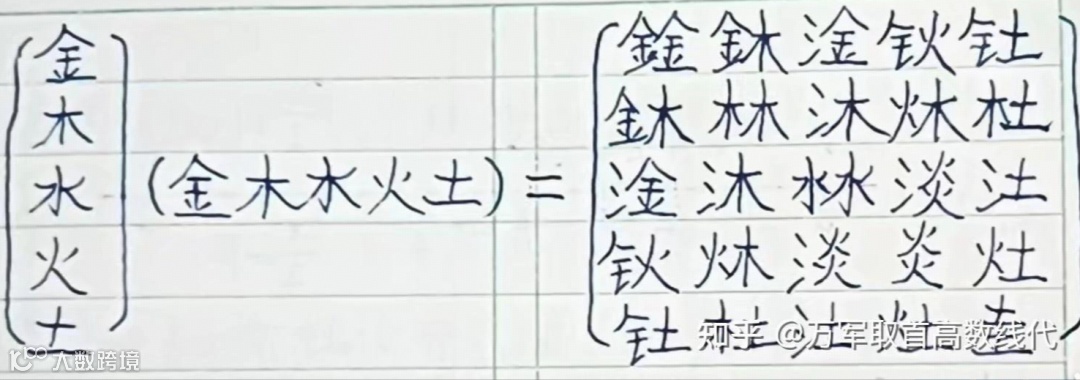 金 鍂 鉢 淦 钬 钍
木 鉢 林 沐 炑 杜
水 (金木水火土) = 淦 沐 沝 淡 汢
火 钬 炑 淡 炎 灶
土 钍 杜 汢 灶 圭
知乎 @万军取首高数线代
大数跨境